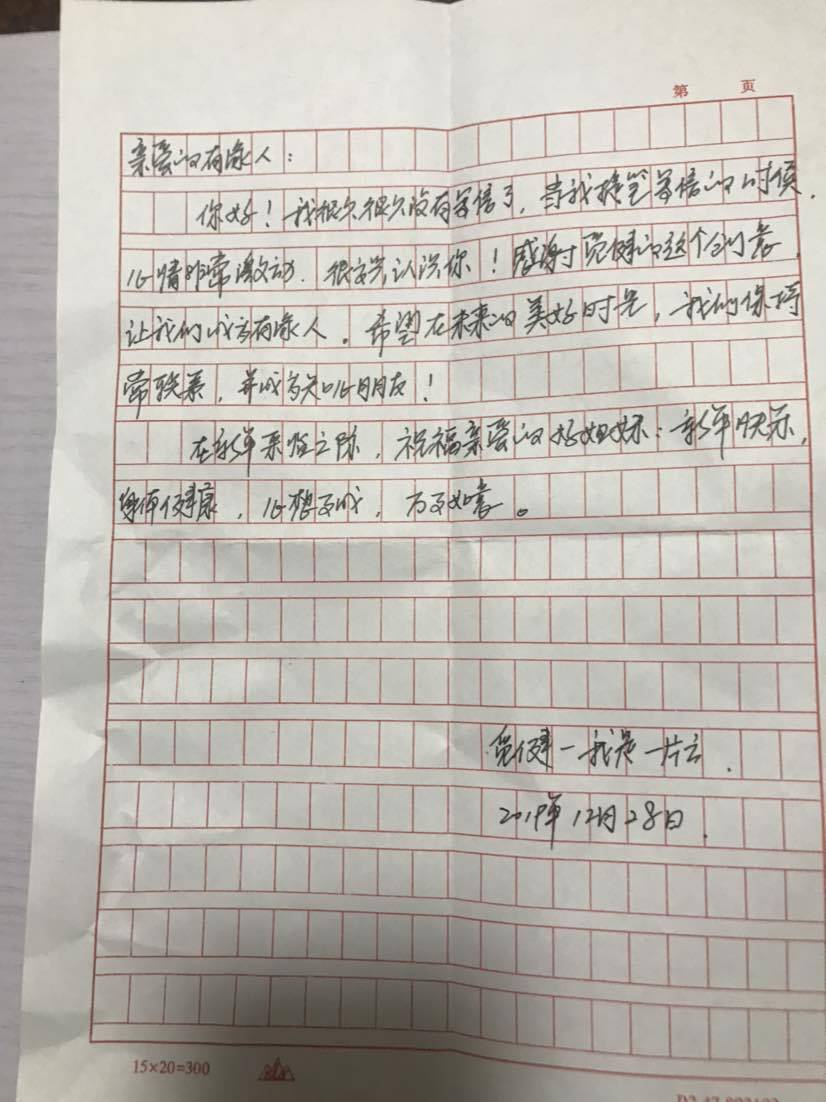 第 页
亲爱的有缘人：
你好！我很久很久没有写信了，当我提笔写信的时候，
心情非常激动，很高兴认识你！感谢觅健的这个创意，
让我们成为有缘人。希望在未来的美好时光，我们保持
常联系，并成为知心朋友！
在新年来临之际，祝福亲爱的好姐妹：新年快乐，
身体健康，心想事成，万事如意。
觅健－我是一片云．
2019年12月28日．
15×20=300